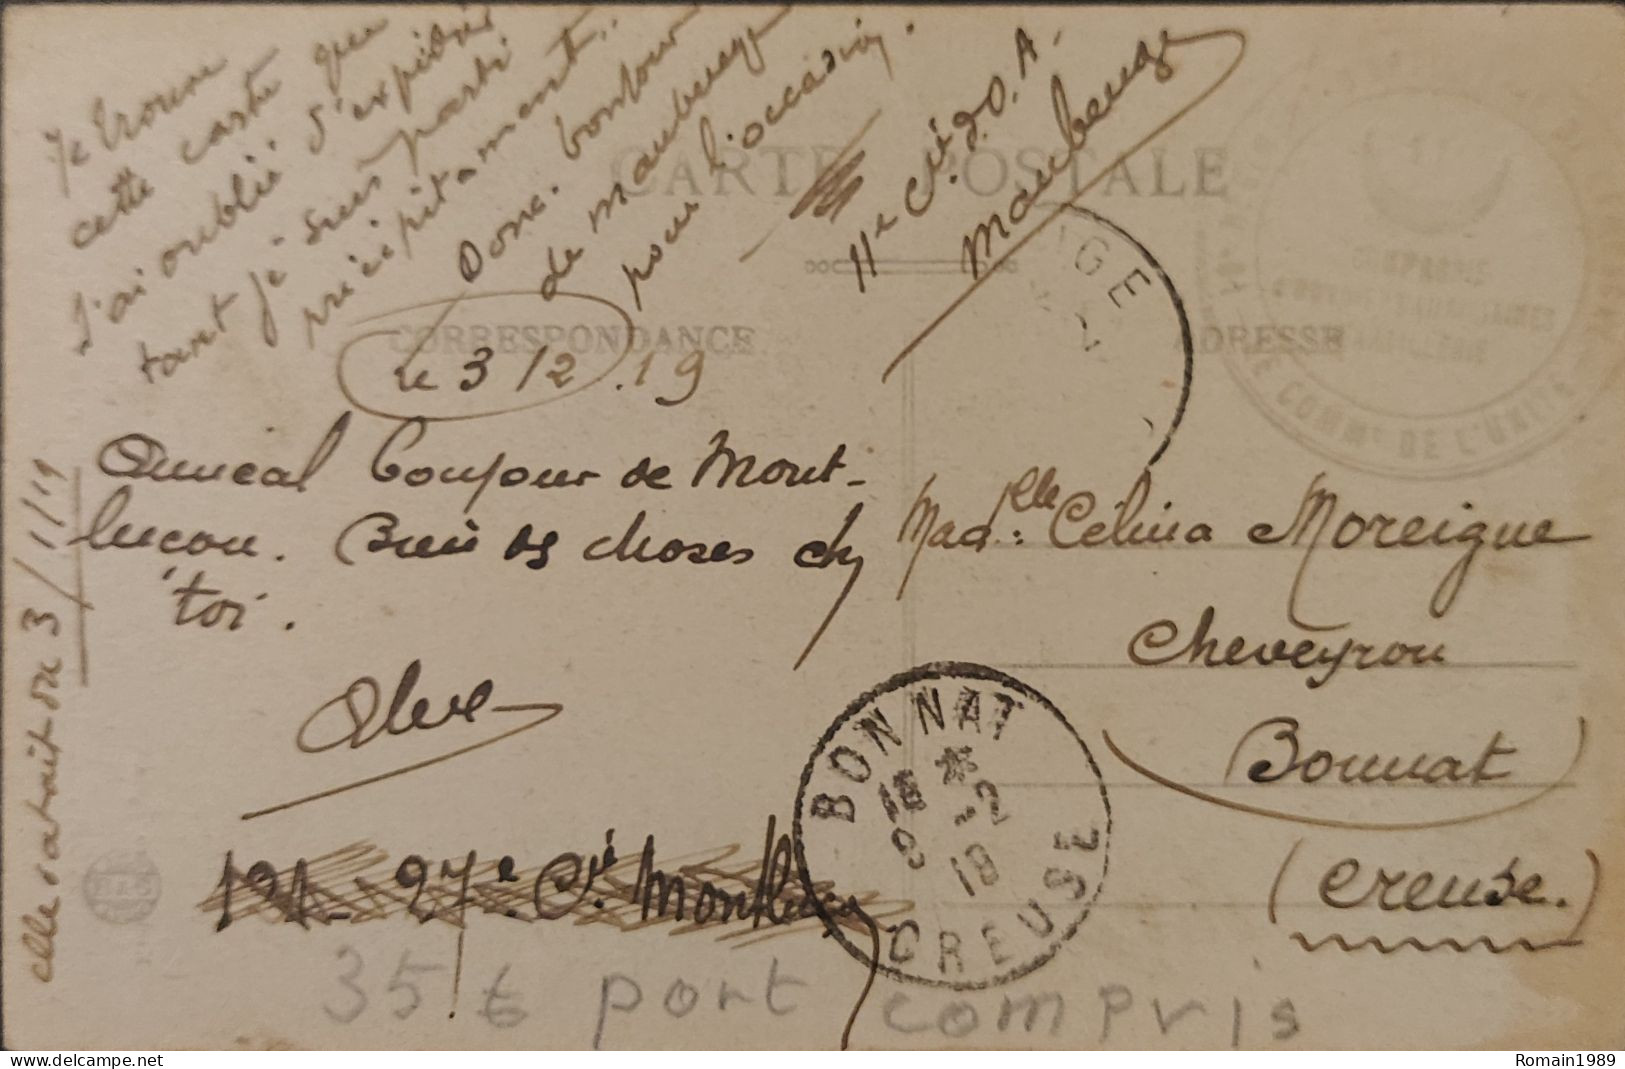 Je trouve
cette carte que
j'ai oublié d'expédier
tant je suis parti
précipitamment...
Donc. bonjour
de Maubeuge
pour l'occasion.
11e Cie d.O.A.
Maubeuge
CARTE POSTALE
CORRESPONDANCE
ADRESSE
COMPAGNIE
LE COMMt DE L'UNITÉ
le 3/2.19
Amical bonjour de Mont-
luçon. Bien des choses chez
toi.
elle satrait du 3/1/19
Madelle: Célina Moreigne
Cheveyrou
Bonnat
(Creuse.)
BONNAT
18 *
8 -2
19
CREUSE
121 - 27e Cie Montluçon
35 € port compris
Romain1989